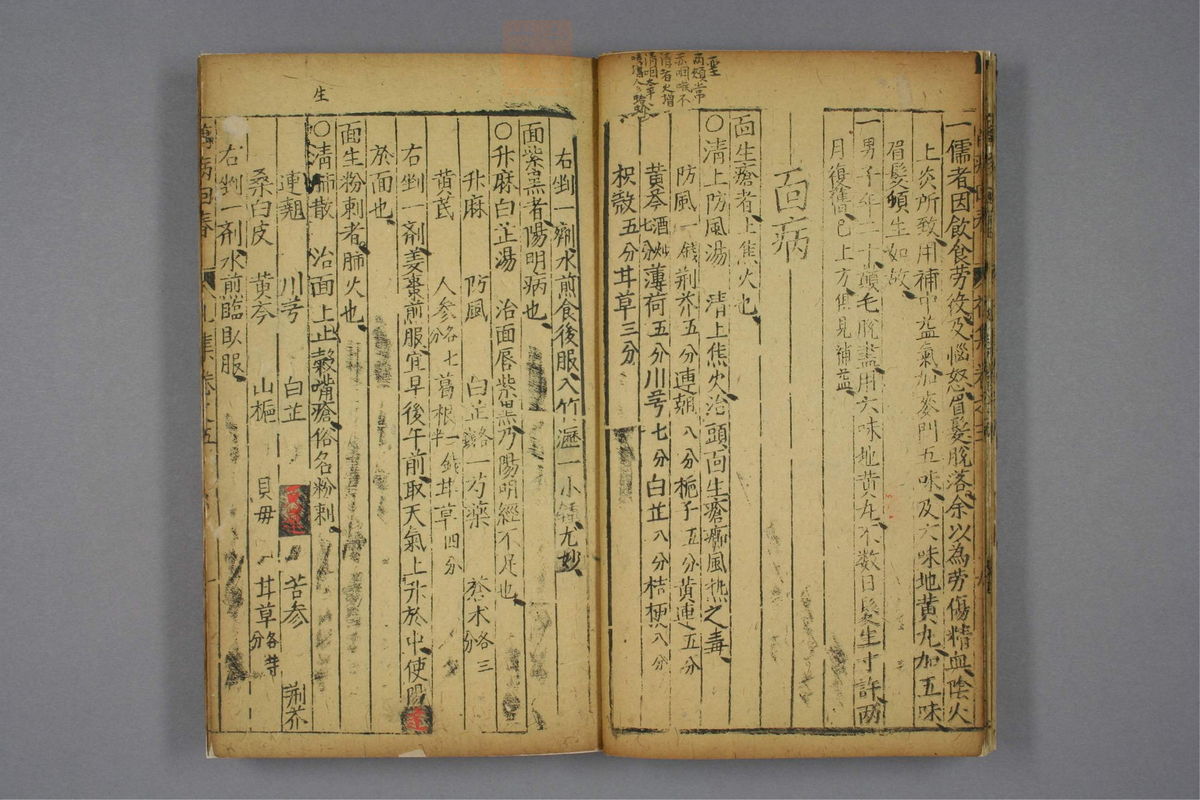 一儒者因飲食劳役及惱怒眉髮脫落余以為劳傷精血陰火
上炎所致用補中益氣加麥門五味及六味地黄九加五味
眉髮頓生如故
一男子年二十巔毛脫盡用六味地黄九不数日髮生寸許两
月復舊已上方俱見補益
面病
面生瘡者上焦火也
○清上防風湯　清上焦火治頭面生瘡癤風热之毒
防風一錢荆芥五分連翹八分梔子五分黄連五分
黄芩酒炒七分薄荷五分川芎七分白芷八分桔梗八分
枳殻五分甘草三分
右剉一劑水煎食後服入竹瀝一小鍾尤妙
面紫黑者陽明病也
○升麻白芷湯　治面唇紫黑乃陽明經不足也
升麻　防風　白芷各一芍藥　蒼术各三分
黄芪　人参各七分葛根一錢半甘草四分
右剉一剂姜棗煎服宜早後午前取天氣上升於中使陽達
於面也
面生粉刺者肺火也
○清肺散　治面上止穀嘴瘡俗名粉刺
連翹　川芎　白芷　黄連　苦参　荆芥
桑白皮　黄芩　山梔　貝母　甘草各等分
右剉一剂水煎臨臥服
生
两頰常
赤咽喉不